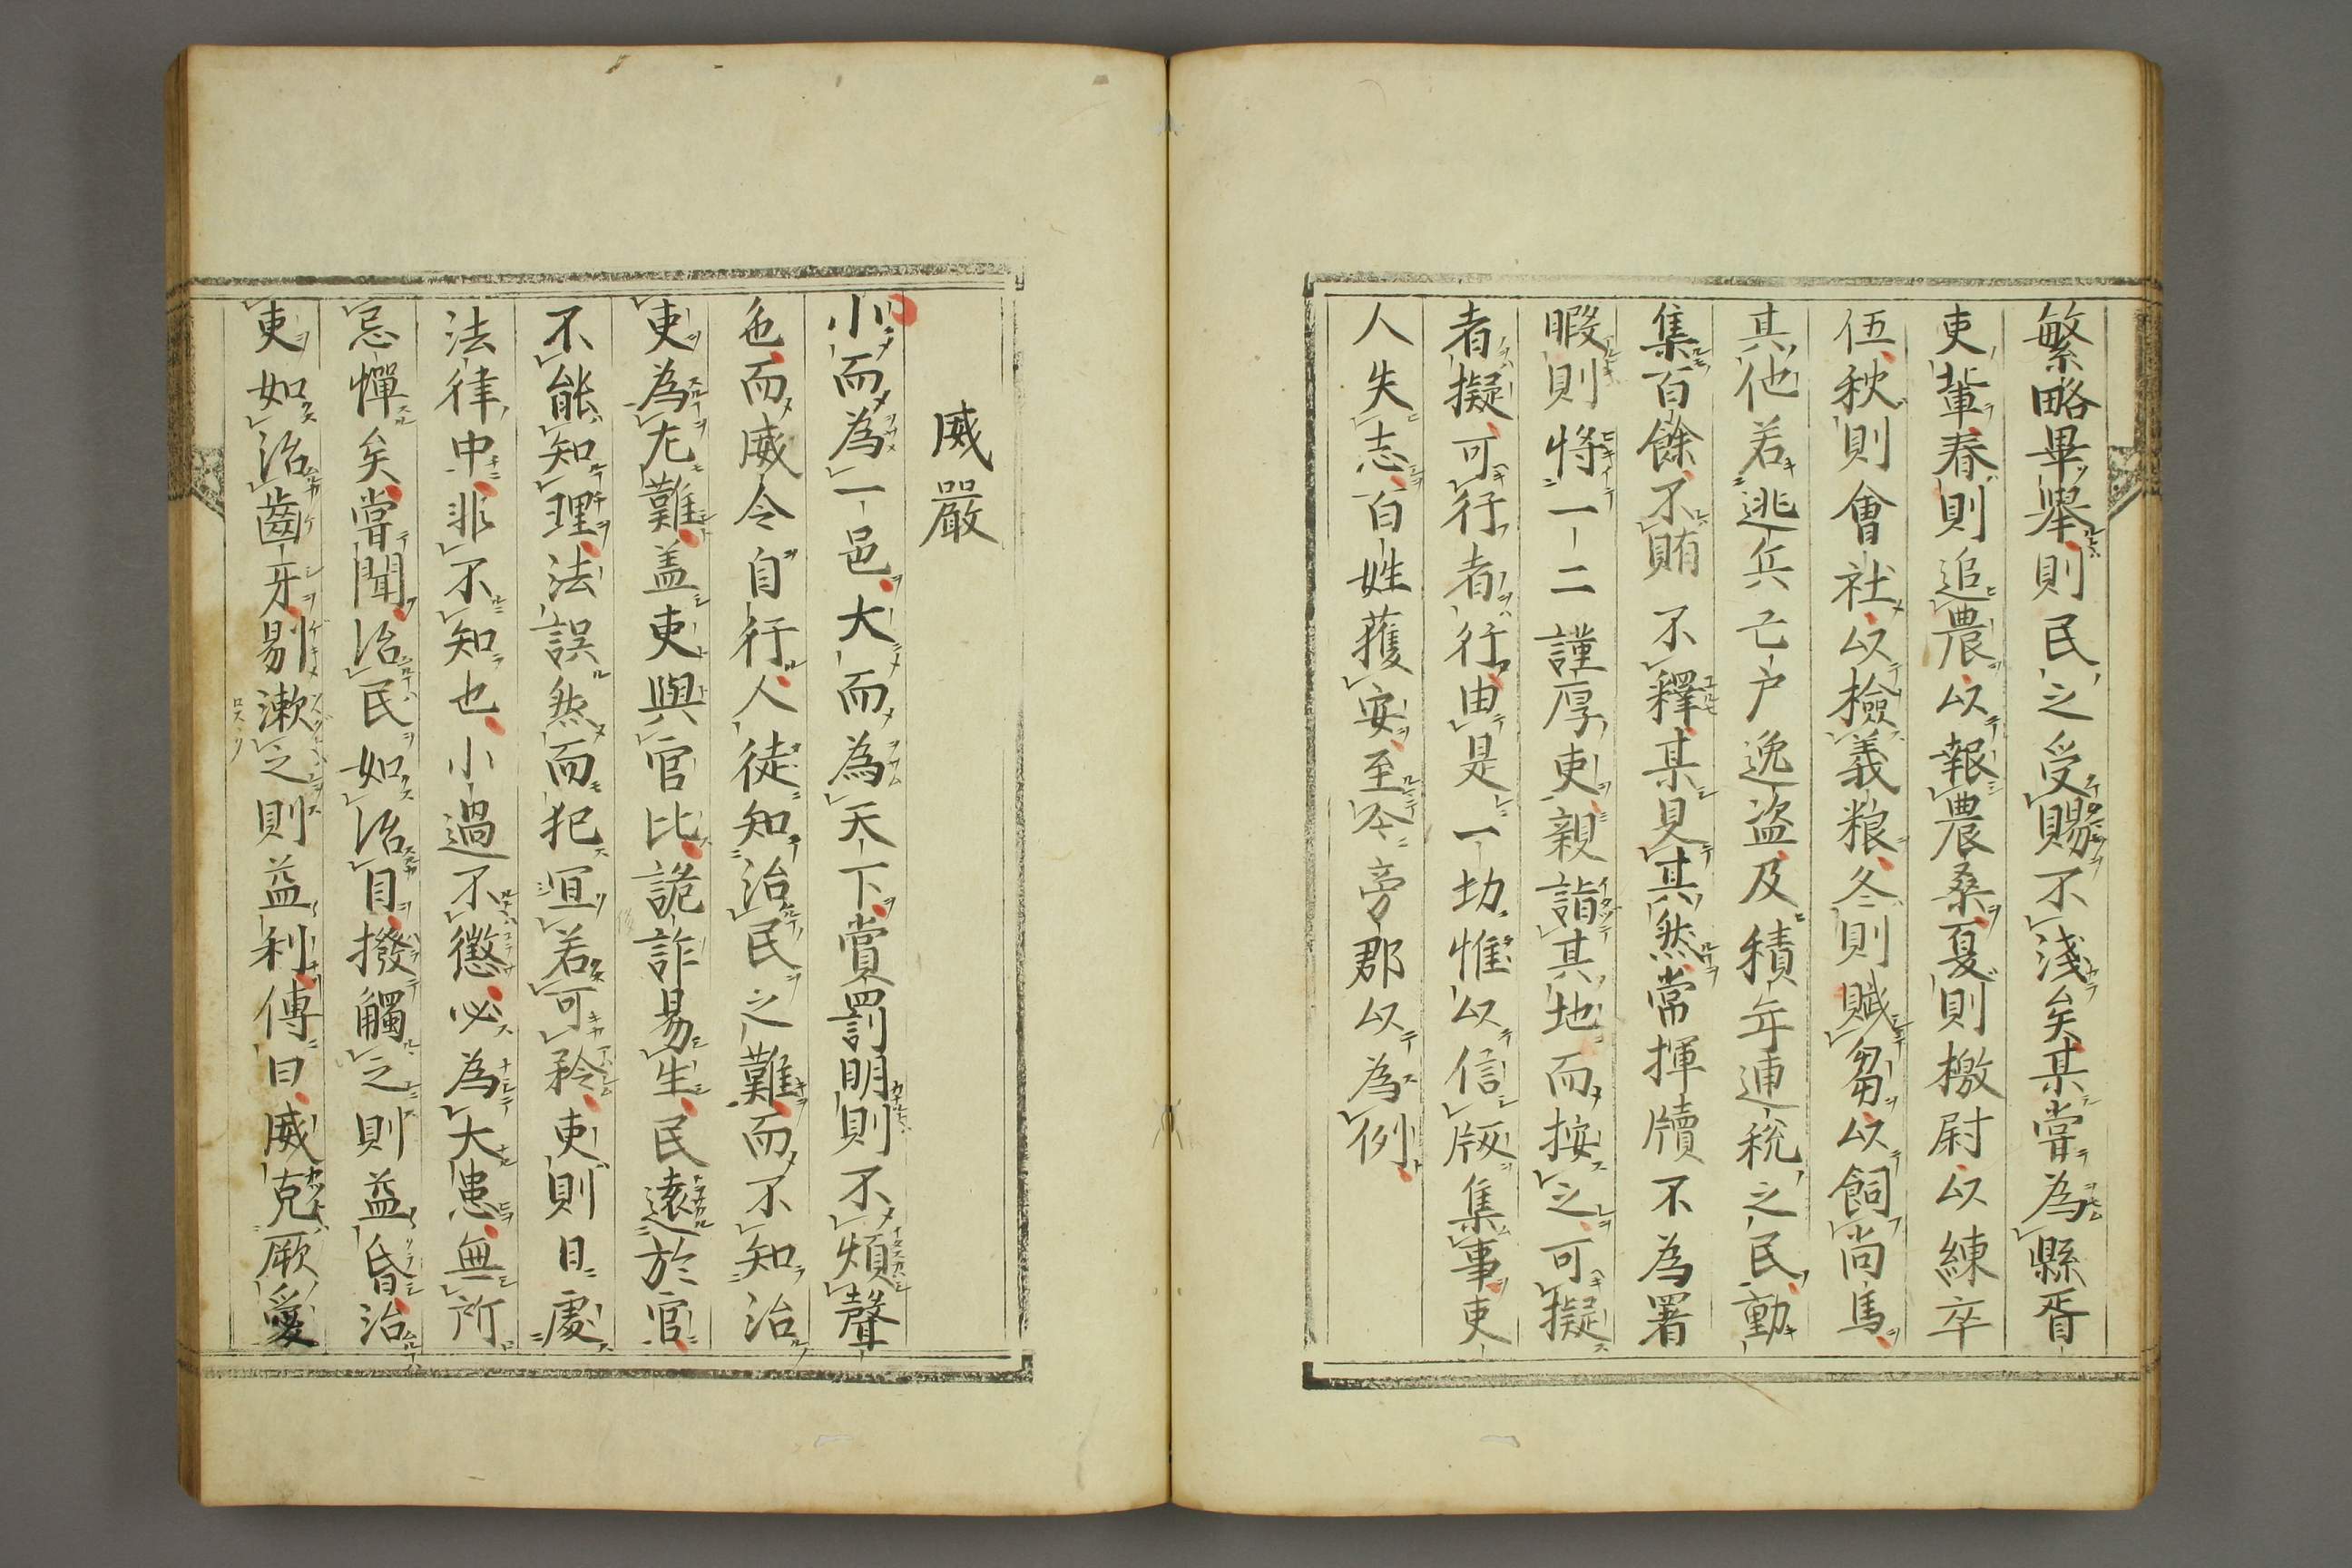 繁略畢舉則民之受賜不淺矣某嘗為縣胥
吏輩春則追農以報農桑夏則檄尉以練卒
伍秋則會社以檢義粮冬則賦芻以飼尚馬
其他若逃兵亡户逸盗及積年逋税之民動
集百餘不賄不釋某見其然常揮牘不為署
暇則将一二謹厚吏親詣其地而按之可擬
者擬可行者行由是一切惟以信版集事吏
人失志百姓獲安至今旁郡以為例
威嚴
小而為一邑大而為天下賞罰明則不煩聲
色而威令自行人徒知治民之難而不知治
吏為尤難盖吏與官比詭詐易生民遠於官
不能知理法誤然而犯宜若可矜吏則日處
法律中非不知也小過不懲必為大患無所
忌憚矣嘗聞治民如治目撥觸之則益昏治
吏如治齒牙剔漱之則益利傳曰威克厥愛